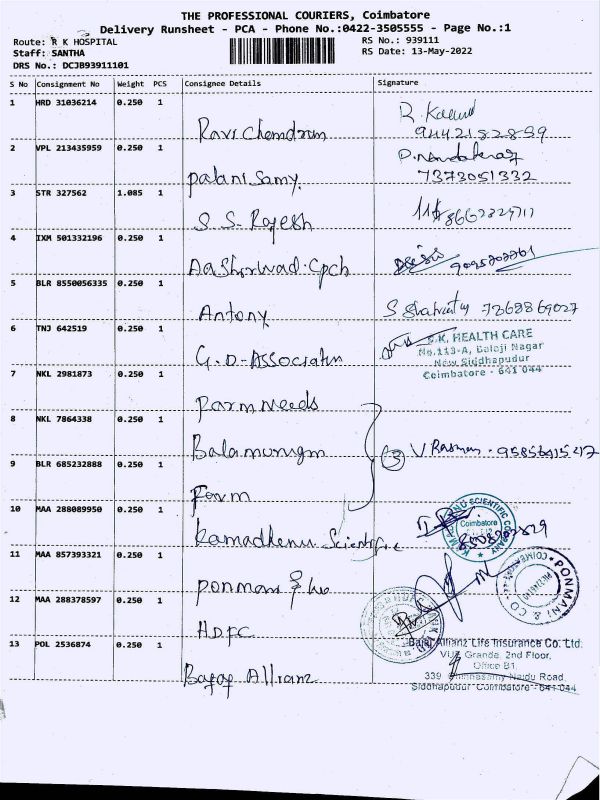 THE PROFESSIONAL COURIERS, Coimbatore
Delivery Runsheet - PCA - Phone No.:0422-3505555 - Page No.:1
Route: R K HOSPITAL
Staff: SANTHA
DRS No.: DCJB93911101
RS No.: 939111
RS Date: 13-May-2022
S No Consignment No Weight PCS Consignee Details Signature
1 HRD 31036214 0.250 1
Ravi Chandran
2 VPL 213435959 0.250 1
palanisamy.
7373051332
3 STR 327562 1.085 1
S. S. Rajesh
4 IXM 501332196 0.250 1
5 BLR 8550056335 0.250 1
Antony
6 TNJ 642519 0.250 1
G.D-Associates
K. HEALTH CARE
No.113-A, Balaji Nagar
New Siddhapudur
Coimbatore - 641 044
7 NKL 2981873 0.250 1
Farm needs
8 NKL 7864338 0.250 1
Balamurugan
3
9 BLR 685232888 0.250 1
Farm
10 MAA 288089950 0.250 1
Kamadhenu Scientific
Coimbatore
11 MAA 857393321 0.250 1
ponmani & co
PONMANI & CO
12 MAA 288378597 0.250 1
HDFC
13 POL 2536874 0.250 1
Bajaj Allianz
Bajaj Allianz Life Insurance Co. Ltd.
Grande, 2nd Floor,
Office B1,
339 Naidu Road,
Siddhapudur Coimbatore - 641 044